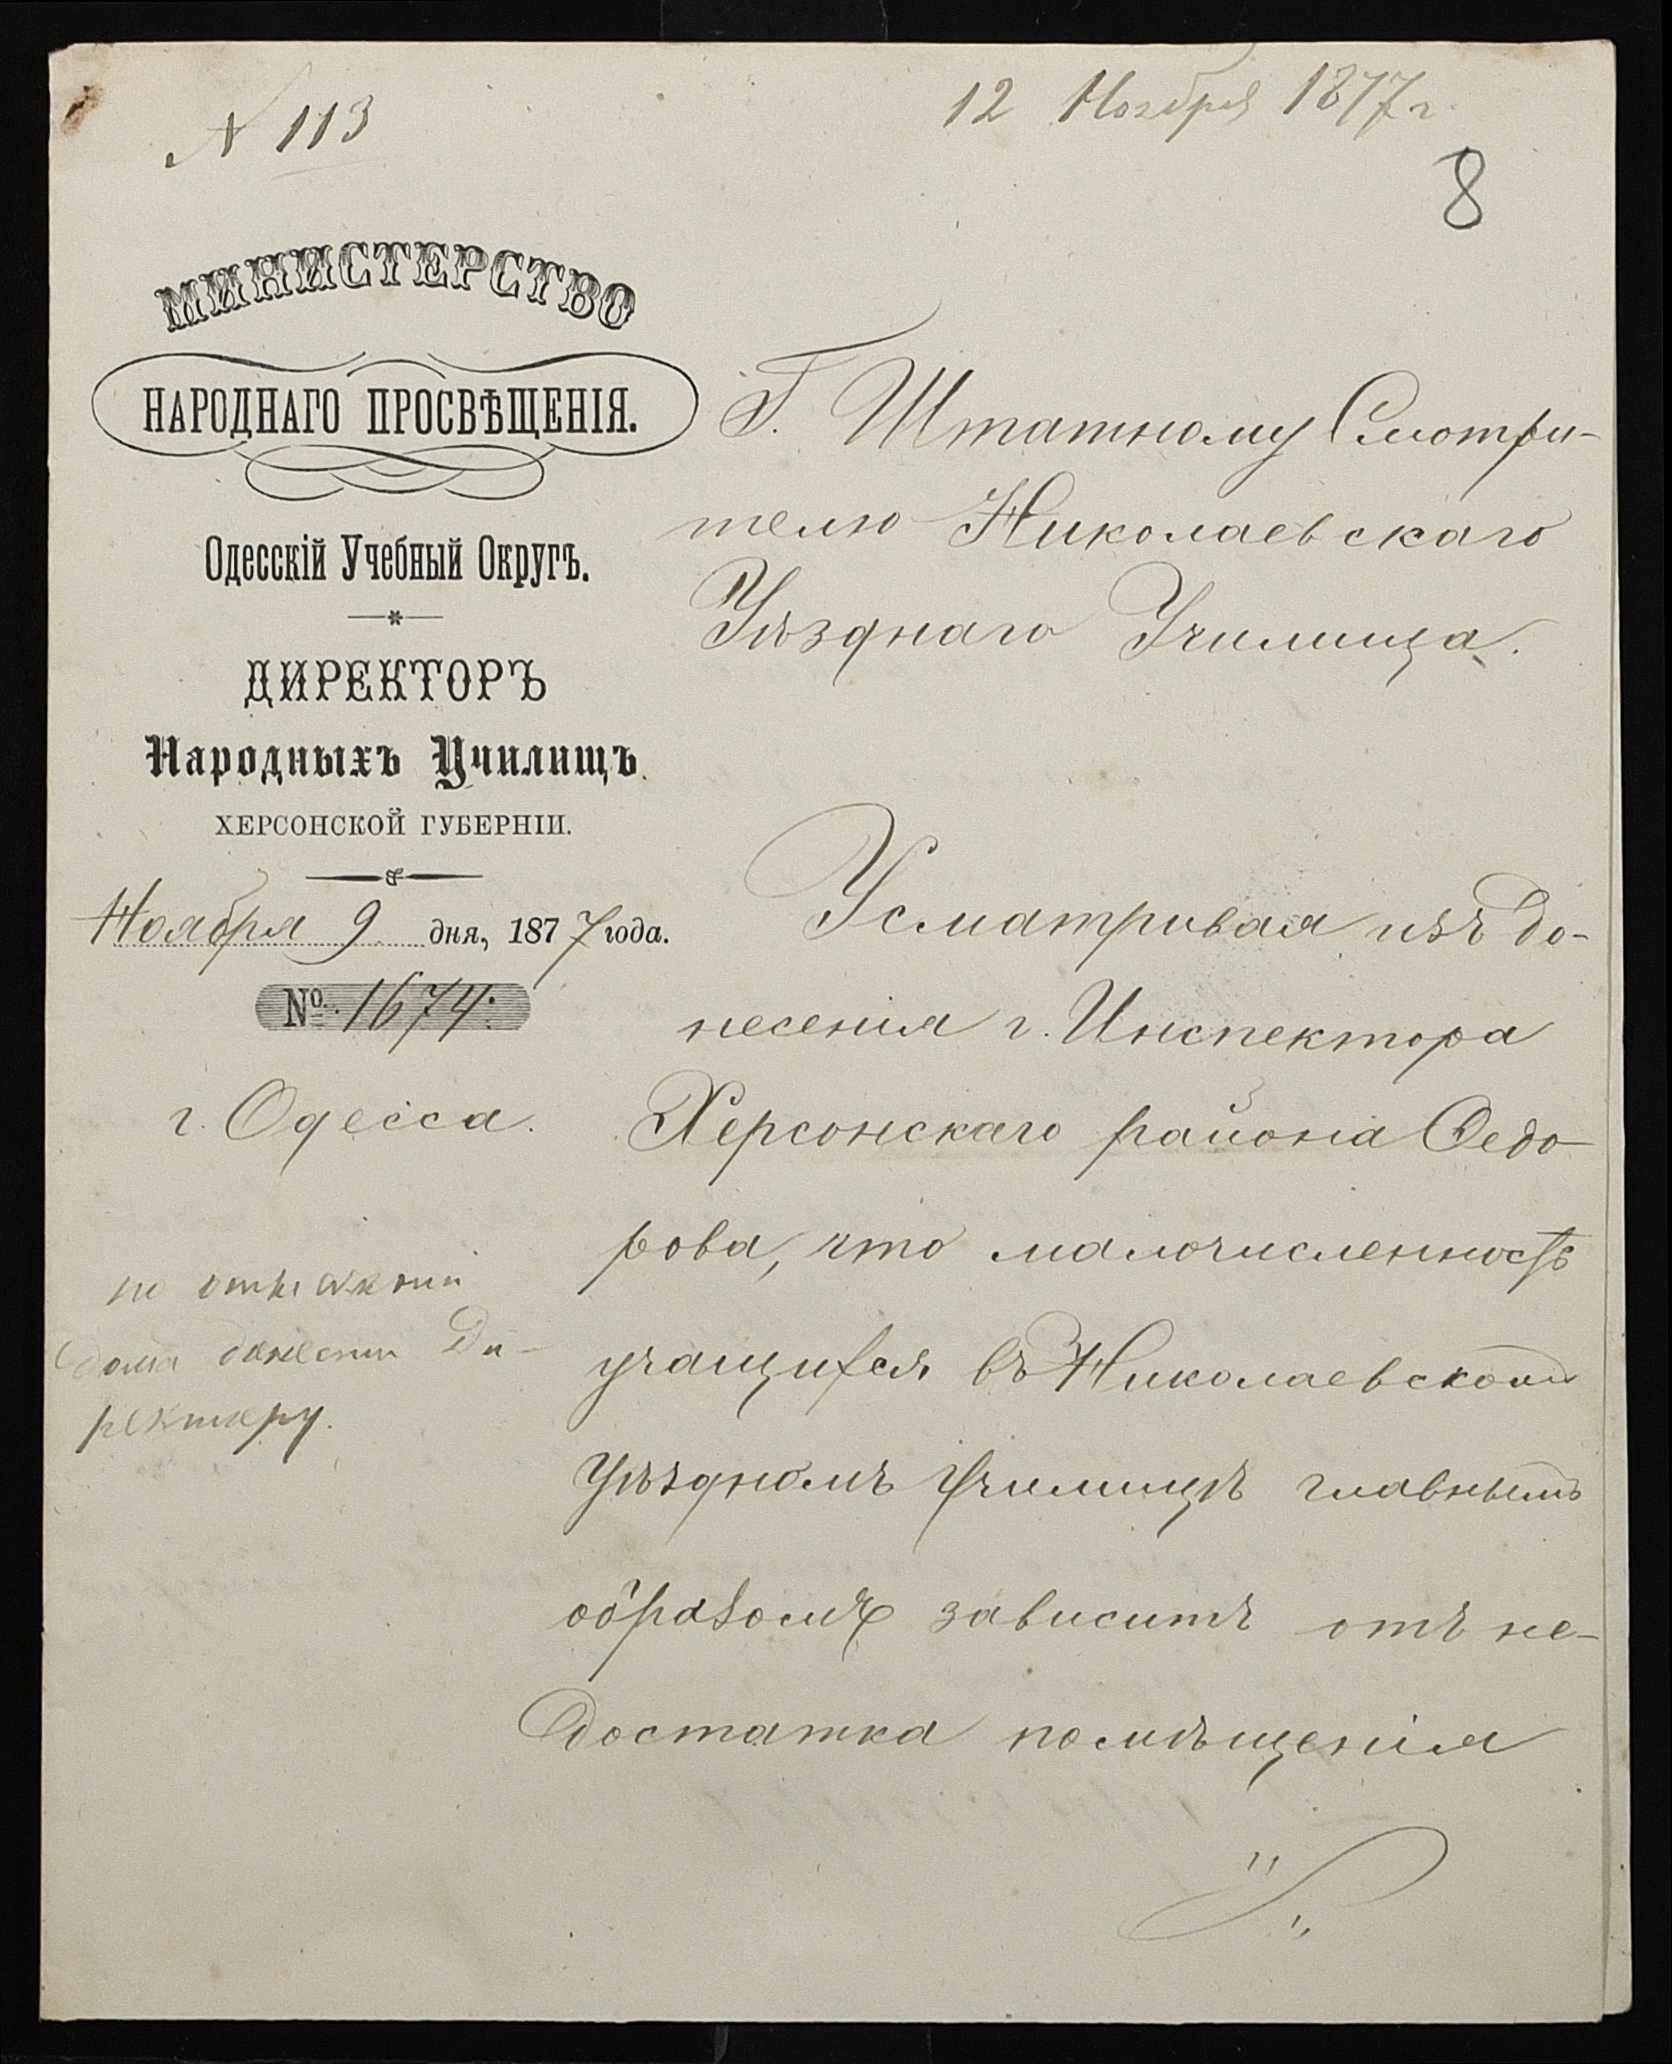 N 113
12 Ноября 1877 г.
8
МИНИСТЕРСТВО
НАРОДНАГО ПРОСВѢЩЕНІЯ.
Одесскій Учебный Округъ.
ДИРЕКТОРЪ
Народныхъ Училищъ
ХЕРСОНСКОЙ ГУБЕРНІИ.
Ноября 9 дня, 1877 года.
№ 1674.
г. Одесса.
по отысканіи
дома донести Ди-
ректору.
Г. Штатному Смотри-
телю Николаевскаго
Уѣзднаго Училища.
Усматривая изъ до-
несенія г. Инспектора
Херсонскаго района Ѳедо-
рова, что малочисленность
учащихся въ Николаевскомъ
уѣздномъ училищѣ главнымъ
образомъ зависитъ отъ не-
достатка помѣщенія